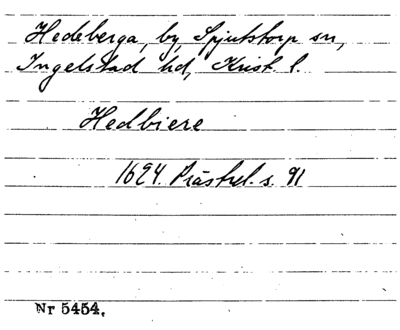 Hedeberga, by, Spjutstorp sn,
Ingelstad hd, Krist. l.
Hedbiere
1624. Prästrel. s. 91
Nr 5454.